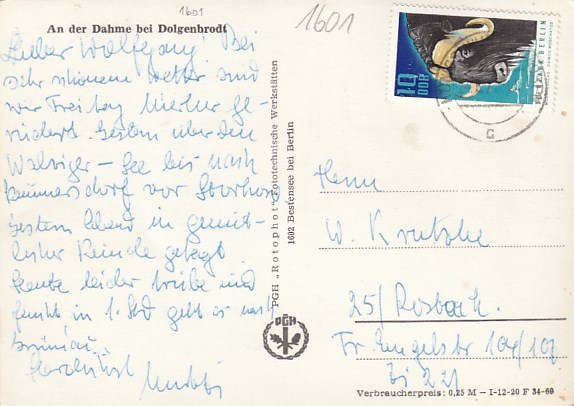 1601
1601
An der Dahme bei Dolgenbrodt
Lieber Wolfgang! Bei
sehr schönem Wetter sind
wir Freitag hierher ge-
rudert. Gestern über den
Wolziger-See bis nach
vor Storkow
Gestern Abend in gemüt-
licher Runde getagt
Heute leider trübe und
in 1. Std geht es nach
Grünau.
Herzlichst
PGH „Rotophot" Fototechnische Werkstätten
1602 Bestensee bei Berlin
PGH
10
DDR
TIERPARK BERLIN
C
Herrn
W. Kratzke
25/ Rostock
Fr. Engelsstr 104/107
Bi 221
Verbraucherpreis: 0,25 M – I-12-20 F 34-69